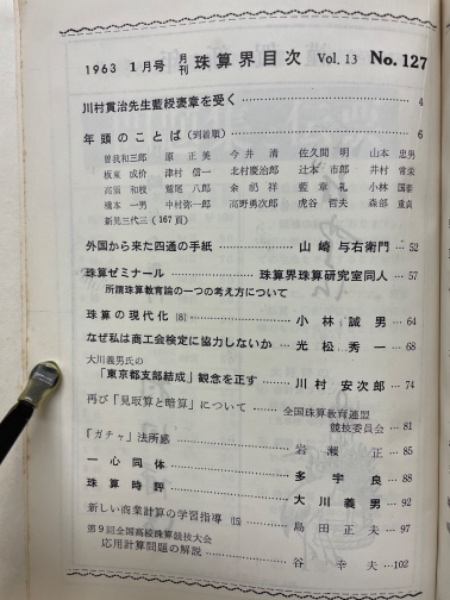 1963 1月号 月刊 珠算界目次 Vol. 13 No. 127
川村貫治先生藍綬褒章を受く…………4
年頭のことば（到着順）…………6
曽我和三郎 原正美 今井清 佐久間明 山本忠男
板東成价 津村信一 北村慶治郎 辻本市郎 井村常栄
高須和枝 鷲尾八郎 余礽祥 藍章礼 小林国泰
磯本一男 中村弥一郎 高野勇次郎 虎谷哲夫 森部重貞
新見三代三（167頁）
外国から来た四通の手紙…………山崎与右衛門…52
珠算ゼミナール…………珠算界珠算研究室同人…57
所謂珠算教育論の一つの考え方について
珠算の現代化〔8〕…………小林誠男…64
なぜ私は商工会検定に協力しないか…光松秀一…68
大川義男氏の
「東京都支部結成」観念を正す…川村安次郎…74
再び「見取算と暗算」について…全国珠算教育連盟
競技委員会…81
「ガチャ」法所感…………岩瀬正…85
一心同体…………多宇良…88
珠算時評…………大川義男…92
新しい商業計算の学習指導〔15〕…………島田正夫…97
第9回全国高校珠算競技大会
応用計算問題の解説…………谷幸夫…102